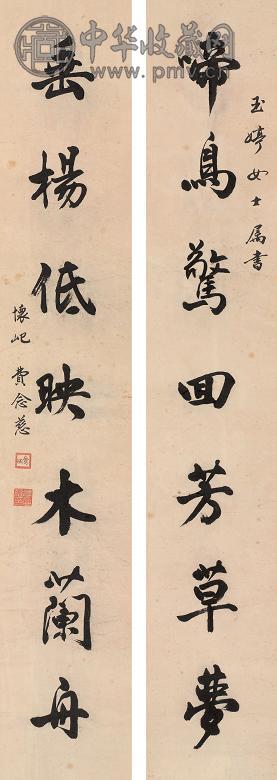 玉婷女士属书
啼鳥驚回芳草夢
垂楊低映木蘭舟
懷屺 費念慈
中华收藏网
www.pmv.cn